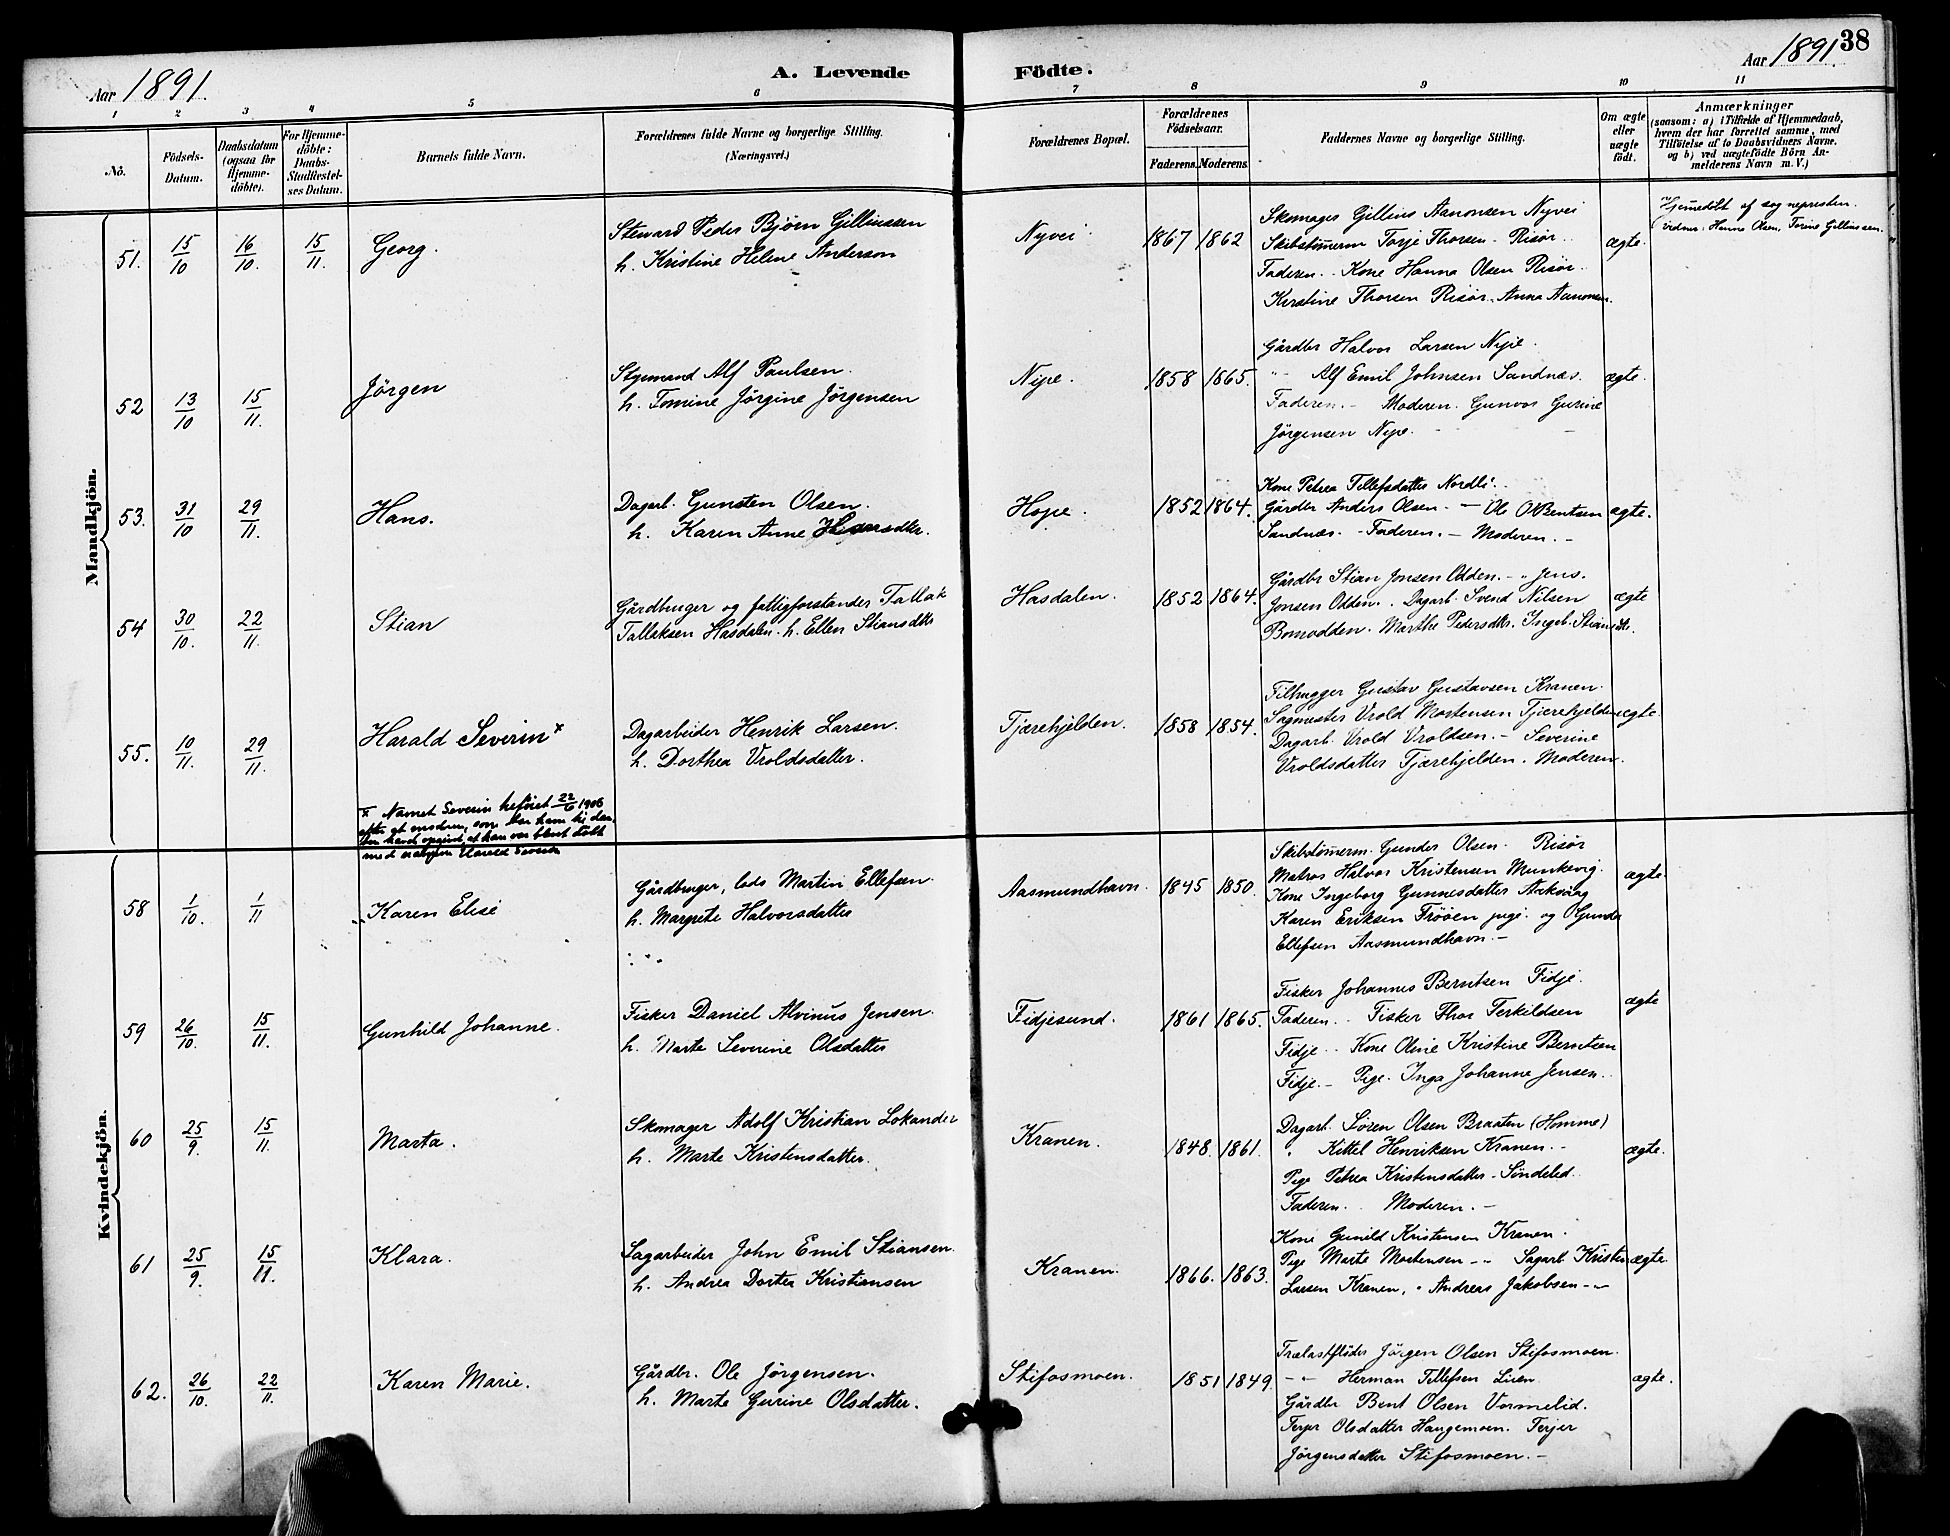 Aar 1891. A. Levende Födte. Aar 1891. 38
1 2 3 4 5 6 7 8 9 10 11
No.
Födsels-
Datum.
Daabsdatum
(ogsaa for
Hjemme-
döbte).
For Hjemme-
döbte:
Daabs-
Stadfæstel-
ses Datum.
Barnets fulde Navn.
Forældrenes fulde Navne og borgerlige Stilling.
(Næringsvei.)
Forældrenes Bopæl.
Forældrenes
Födselsaar.
Faderens. Moderens.
Faddernes Navne og borgerlige Stilling.
Om ægte
eller
uægte
födt.
Anmærkninger
(saasom: a) i Tilfælde af Hjemmedaab,
hvem der har forrettet samme, med
Tilföielse af to Daabsvidners Navne,
og b) ved uægtefödte Börn An-
melderens Navn m. V.)
Mandkjön.
51. 15/10 16/10. 15/11. Georg.
Steward Peder Bjørn Gilliussen
h. Kristine Helene Anderson
Nyvei 1867 1862
Skomager Gillius Aanonsen Nyvei
Skibstømerm Torje Thorsen - Risør..
Faderen. - Kone Hanna Olsen Risør..
Kirstine Thorsen Risør. Anna Aanonsen.
ægte.
Hjemedøbt af sognepresten.
Vidner: Hanna Olsen, Torine Gilliussen.
52 13/10 15/11. Jörgen
Styrmand Alf Paulsen.
h. Tomine Jörgine Jörgensen
Nipe. 1858 1865.
Gårdbr Halvor Larsen Nipe.
" - Alf Emil Johnsen Sandnæs.
Faderen. - Moderen. Gunvor Gurine
Jörgensen Nipe.
ægte.
53. 31/10 29/11. Hans.
Dagarb. Gunsten Olsen.
h. Karen Anne Hansdtr.
Hope. 1852 1864.
Kone Petrea Tellefsdatter Nordli..
Gårdbr Anders Olsen. - Ole O. Bentsen
Sandnæs. - Faderen. - Moderen. -
ægte.
54 30/10. 22/11. Stian
Gårdbruger og fattigforstander Tallak
Tallaksen Hasdalen. h. Ellen Stiansdtr
Hasdalen. 1852 1864.
Gårdbr Stian Jonsen Odden. - " Jens.
Jonsen Odden. . Dagarb. Svend Nilsen
Bomodden. Marthe Pedersdtr. Ingeb. Stiansdtr.
ægte
55. 10/11. 29/11. Harald Severin x
Dagarbeider Henrik Larsen.
h. Dorthea Vroldsdatter.
Tjærehjelden. 1858 1854.
Gustav Gustavsen Kranen.
Sagmester Vrold Mortensen Tjærehjelden
Dagarb. Vrold Vroldsen. - Severine
Vroldsdatter Tjærehjelden. Moderen.
ægte.
x Navnet Severin tilföiet 22/6 1906
efter at moderen, som
med navnet Harald Severin
Kvindekjön.
58 1/10. 1/11 Karen Elise
Gårdbruger, lods Martin Ellefsen.
h. Margrete Halvorsdatter
Aasmundhavn. 1845 1850.
Skibstømerm. Gunder Olsen. Risør
Matros Halvor Kristensen Munkevig.
Kone Ingeborg Gunnesdatter Avkvåg
Karen Eriksen Frööen pige. og Gunder
Ellefsen Aasmundhavn. -
ægte
59 26/10. 15/11. Gunhild Johanne.
Fisker Daniel Alvinus Jensen.
h. Marte Severine Olsdatter
Fidjesund. 1861 1865.
Fisker Johannes Berntsen Fidje.
Faderen. - Fisker Thor Terkildsen
Fidje. - Kone Oline Kristine Berntsen
Fidje. - Pige. Inga Johanne Jensen..
ægte
60 25/9. 15/11. Marta.
Skomager Adolf Kristian Lokander
h. Marte Kristensdatter.
Kranen. 1848. 1861.
Dagarb. Sören Olsen Braaten (Homme)
" Kittel Henriksen Kranen. -
Pige Petrea Kristensdatter - Söndeled.
Faderen. . Moderen. -
ægte.
61 25/9. 15/11. Klara.
Sagarbeider John Emil Stiansen.
h. Andrea Dortea Kristiansen
Kranen. 1866. 1863.
Kone Gunild Kristensen Kranen.
Pige Marte Mortensen - " Sagarb. Kristen
Larsen Kranen. " Andreas Jakobsen - "
ægte.
62. 26/10. 22/11. Karen Marie.
Gårdbr. Ole Jörgensen.
h. Marte Gurine Olsdatter.
Stifosmoen. 1851 1849.
Trælastfløder Jörgen Olsen Stifosmoen.
- " - Herman Tellefsen Lien.
Gårdbr Bent Olsen Vormelid.
Terjer Olsdatter Haugemoen. Terjer
Jörgensdatter Stifosmoen. -
ægte.